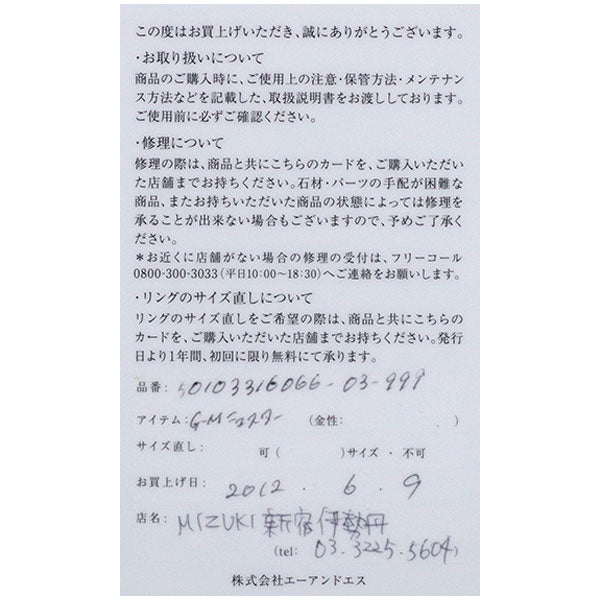 この度はお買上げいただき、誠にありがとうございます。
・お取り扱いについて
商品のご購入時に、ご使用上の注意・保管方法・メンテナン
ス方法などを記載した、取扱説明書をお渡ししております。
ご使用前に必ずご確認ください。
・修理について
修理の際は、商品と共にこちらのカードを、ご購入いただい
た店舗までお持ちください。石材・パーツの手配が困難な
商品、またお持ちいただいた商品の状態によっては修理を
承ることが出来ない場合もございますので、予めご了承く
ださい。
＊お近くに店舗がない場合の修理の受付は、フリーコール
0800-300-3033（平日10:00〜18:30）へご連絡をお願いします。
・リングのサイズ直しについて
リングのサイズ直しをご希望の際は、商品と共にこちらの
カードを、ご購入いただいた店舗までお持ちください。発行
日より1年間、初回に限り無料にて承ります。
品番： 50103316066-03-999
アイテム： （金性： ）
サイズ直し： 可（ ）サイズ・不可
お買上げ日： 2012 . 6 . 9
店名： MIZUKI 新宿伊勢丹
（tel: 03.3225.5604）
株式会社エーアンドエス